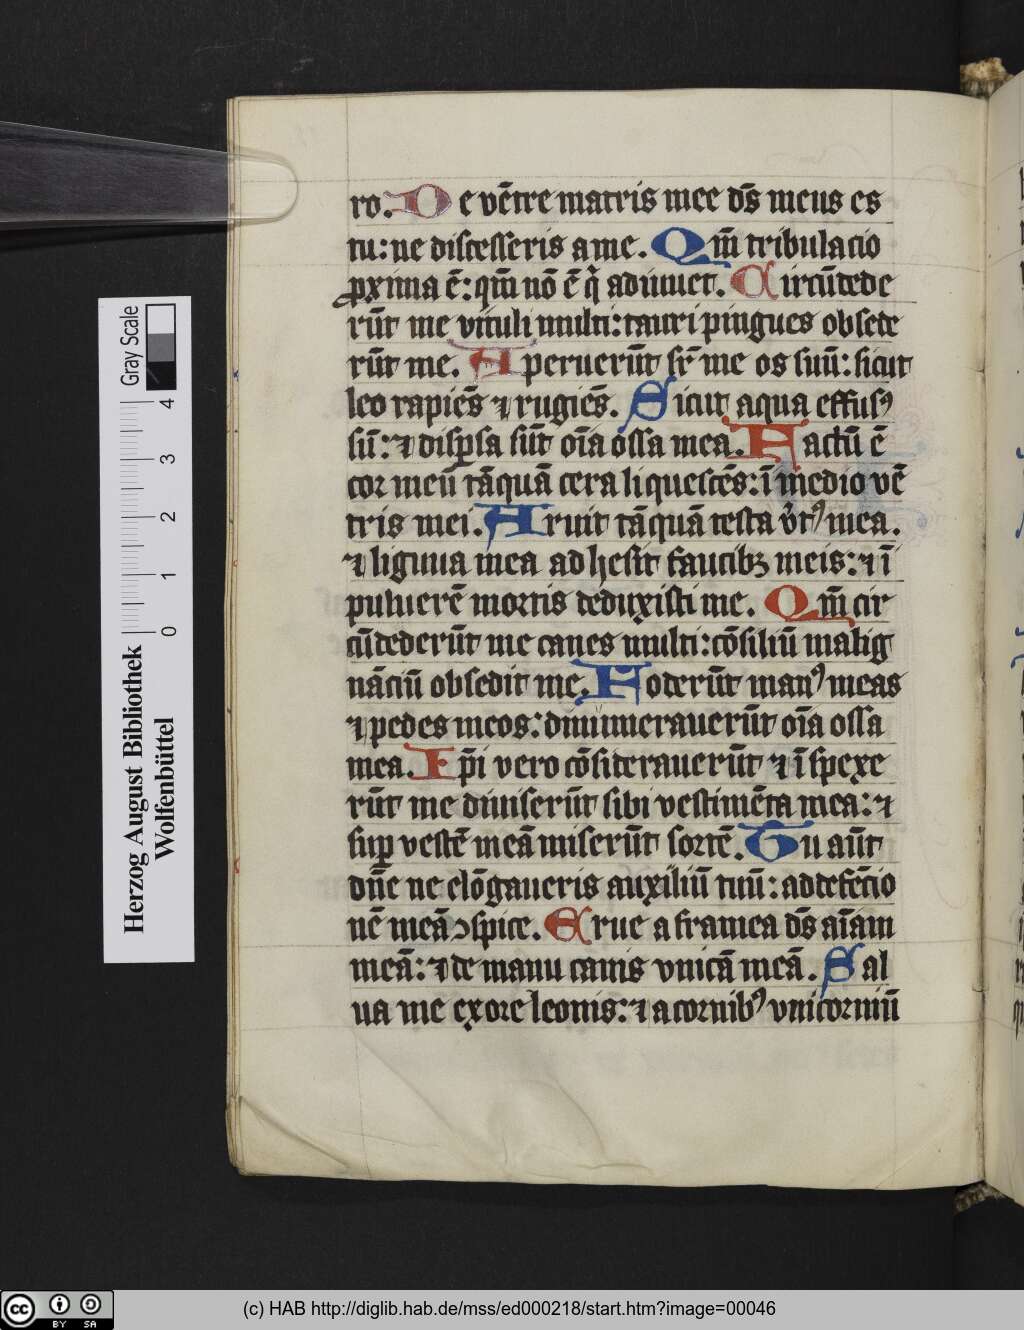 ro. De vētre matris mee ds̄ meus es
tu: ne discesseris a me. Qm̄ tribulacio
ꝓxima ē: qm̄ nō ē q̇ adiuuet. Circūdede
rūt me vituli multi: tauri pingues obsede
rūt me. Aperuerūt sr̄ me os suū: sicut
leo rapiēs ⁊ rugiēs. Sicut aqua effusꝰ
sū: ⁊ dispsa sūt oīa ossa mea. Factū ē
cor meū tāquā cera liquescēs: ī medio vē
tris mei. Aruit tāquā testa v̇tꝰ mea.
⁊ ligwa mea adhesit faucibꝫ meis: ⁊ ī
puluerē mortis deduxisti me. Qm̄ cir
cūdederūt me canes multi: cōsiliū malig
nāciū obsedit me. Foderūt manꝰ meas
⁊ pedes meos: dinumerauerūt oīa ossa
mea. Ip̄i vero cōsiderauerūt ⁊ īspexe
rūt me diuiserūt sibi vestimēta mea: ⁊
suꝑ vestē meā miserūt sortē. Tu aūt
dn̄e ne elōgaueris auxiliū tuū: ad defēcio
nē meā ɔspice. Erue a framea ds̄ aīam
meā: ⁊ de manu canis vnicā meā. Sal
ua me ex ore leonis: ⁊ a cornibꝰ vnicorniū
Herzog August Bibliothek
Wolfenbüttel
0 1 2 3 4
Gray Scale
cc BY SA
(c) HAB http://diglib.hab.de/mss/ed000218/start.htm?image=00046